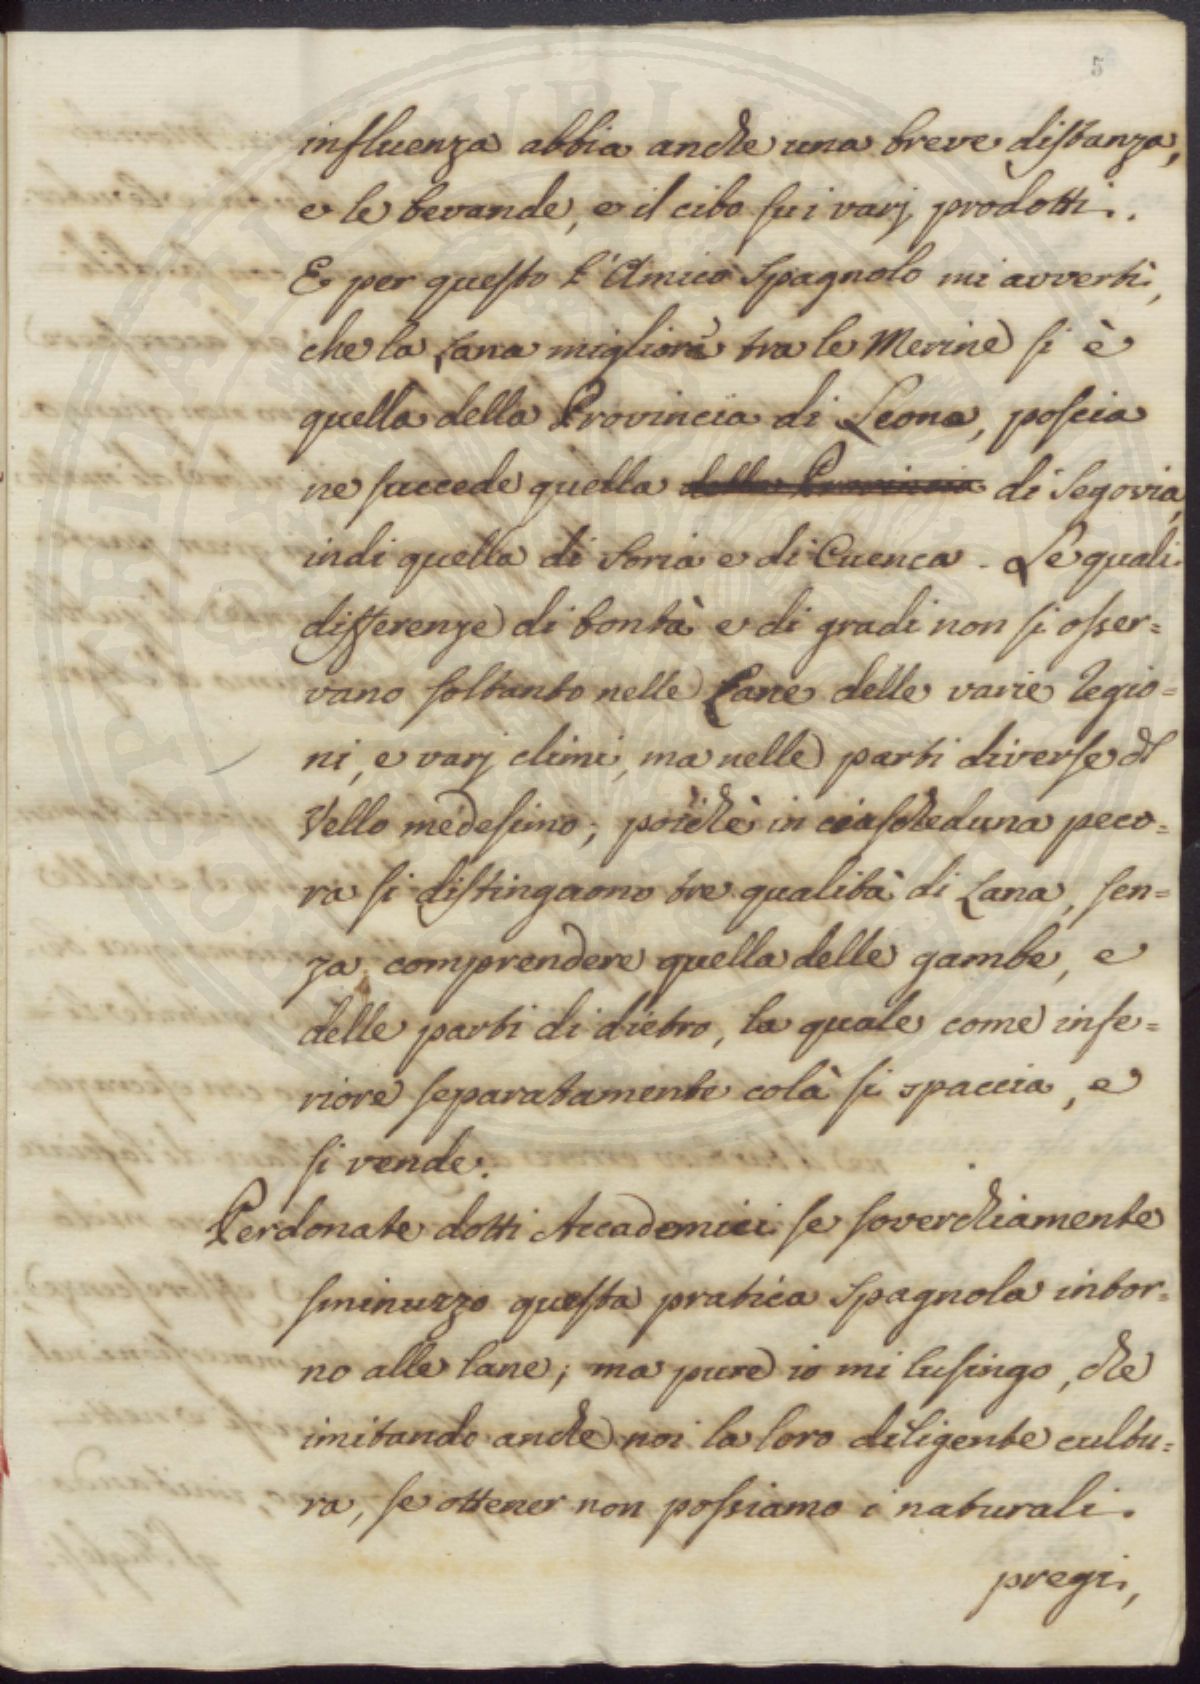 5
influenza abbia anche una breve distanza,
e le bevande, e il cibo sui varj prodotti.
E per questo l'Amico Spagnolo mi avvertì,
che la Lana migliore tra le Merine si è
quella della Provincia di Leone, poscia
ne succede quella della Provincia di Segovia,
indi quella di Soria e di Cuenca. Le quali
differenze di bontà e di gradi non si osser=
vano soltanto nelle Lane delle varie Regio=
ni, e varj climi, ma nelle parti diverse del
Vello medesimo; poichè in ciascheduna peco=
ra si distinguono tre qualità di Lana, sen=
za comprendere quella delle gambe, e
delle parti di dietro, la quale come infe=
riore separatamente colà si spaccia, e
si vende.
Perdonate dotti Accademici se soverchiamente
sminuzzo questa pratica Spagnola intor=
no alle lane; ma pure io mi lusingo, che
imitando anche noi la loro diligente cultu=
ra, se ottener non possiamo i naturali
pregi,